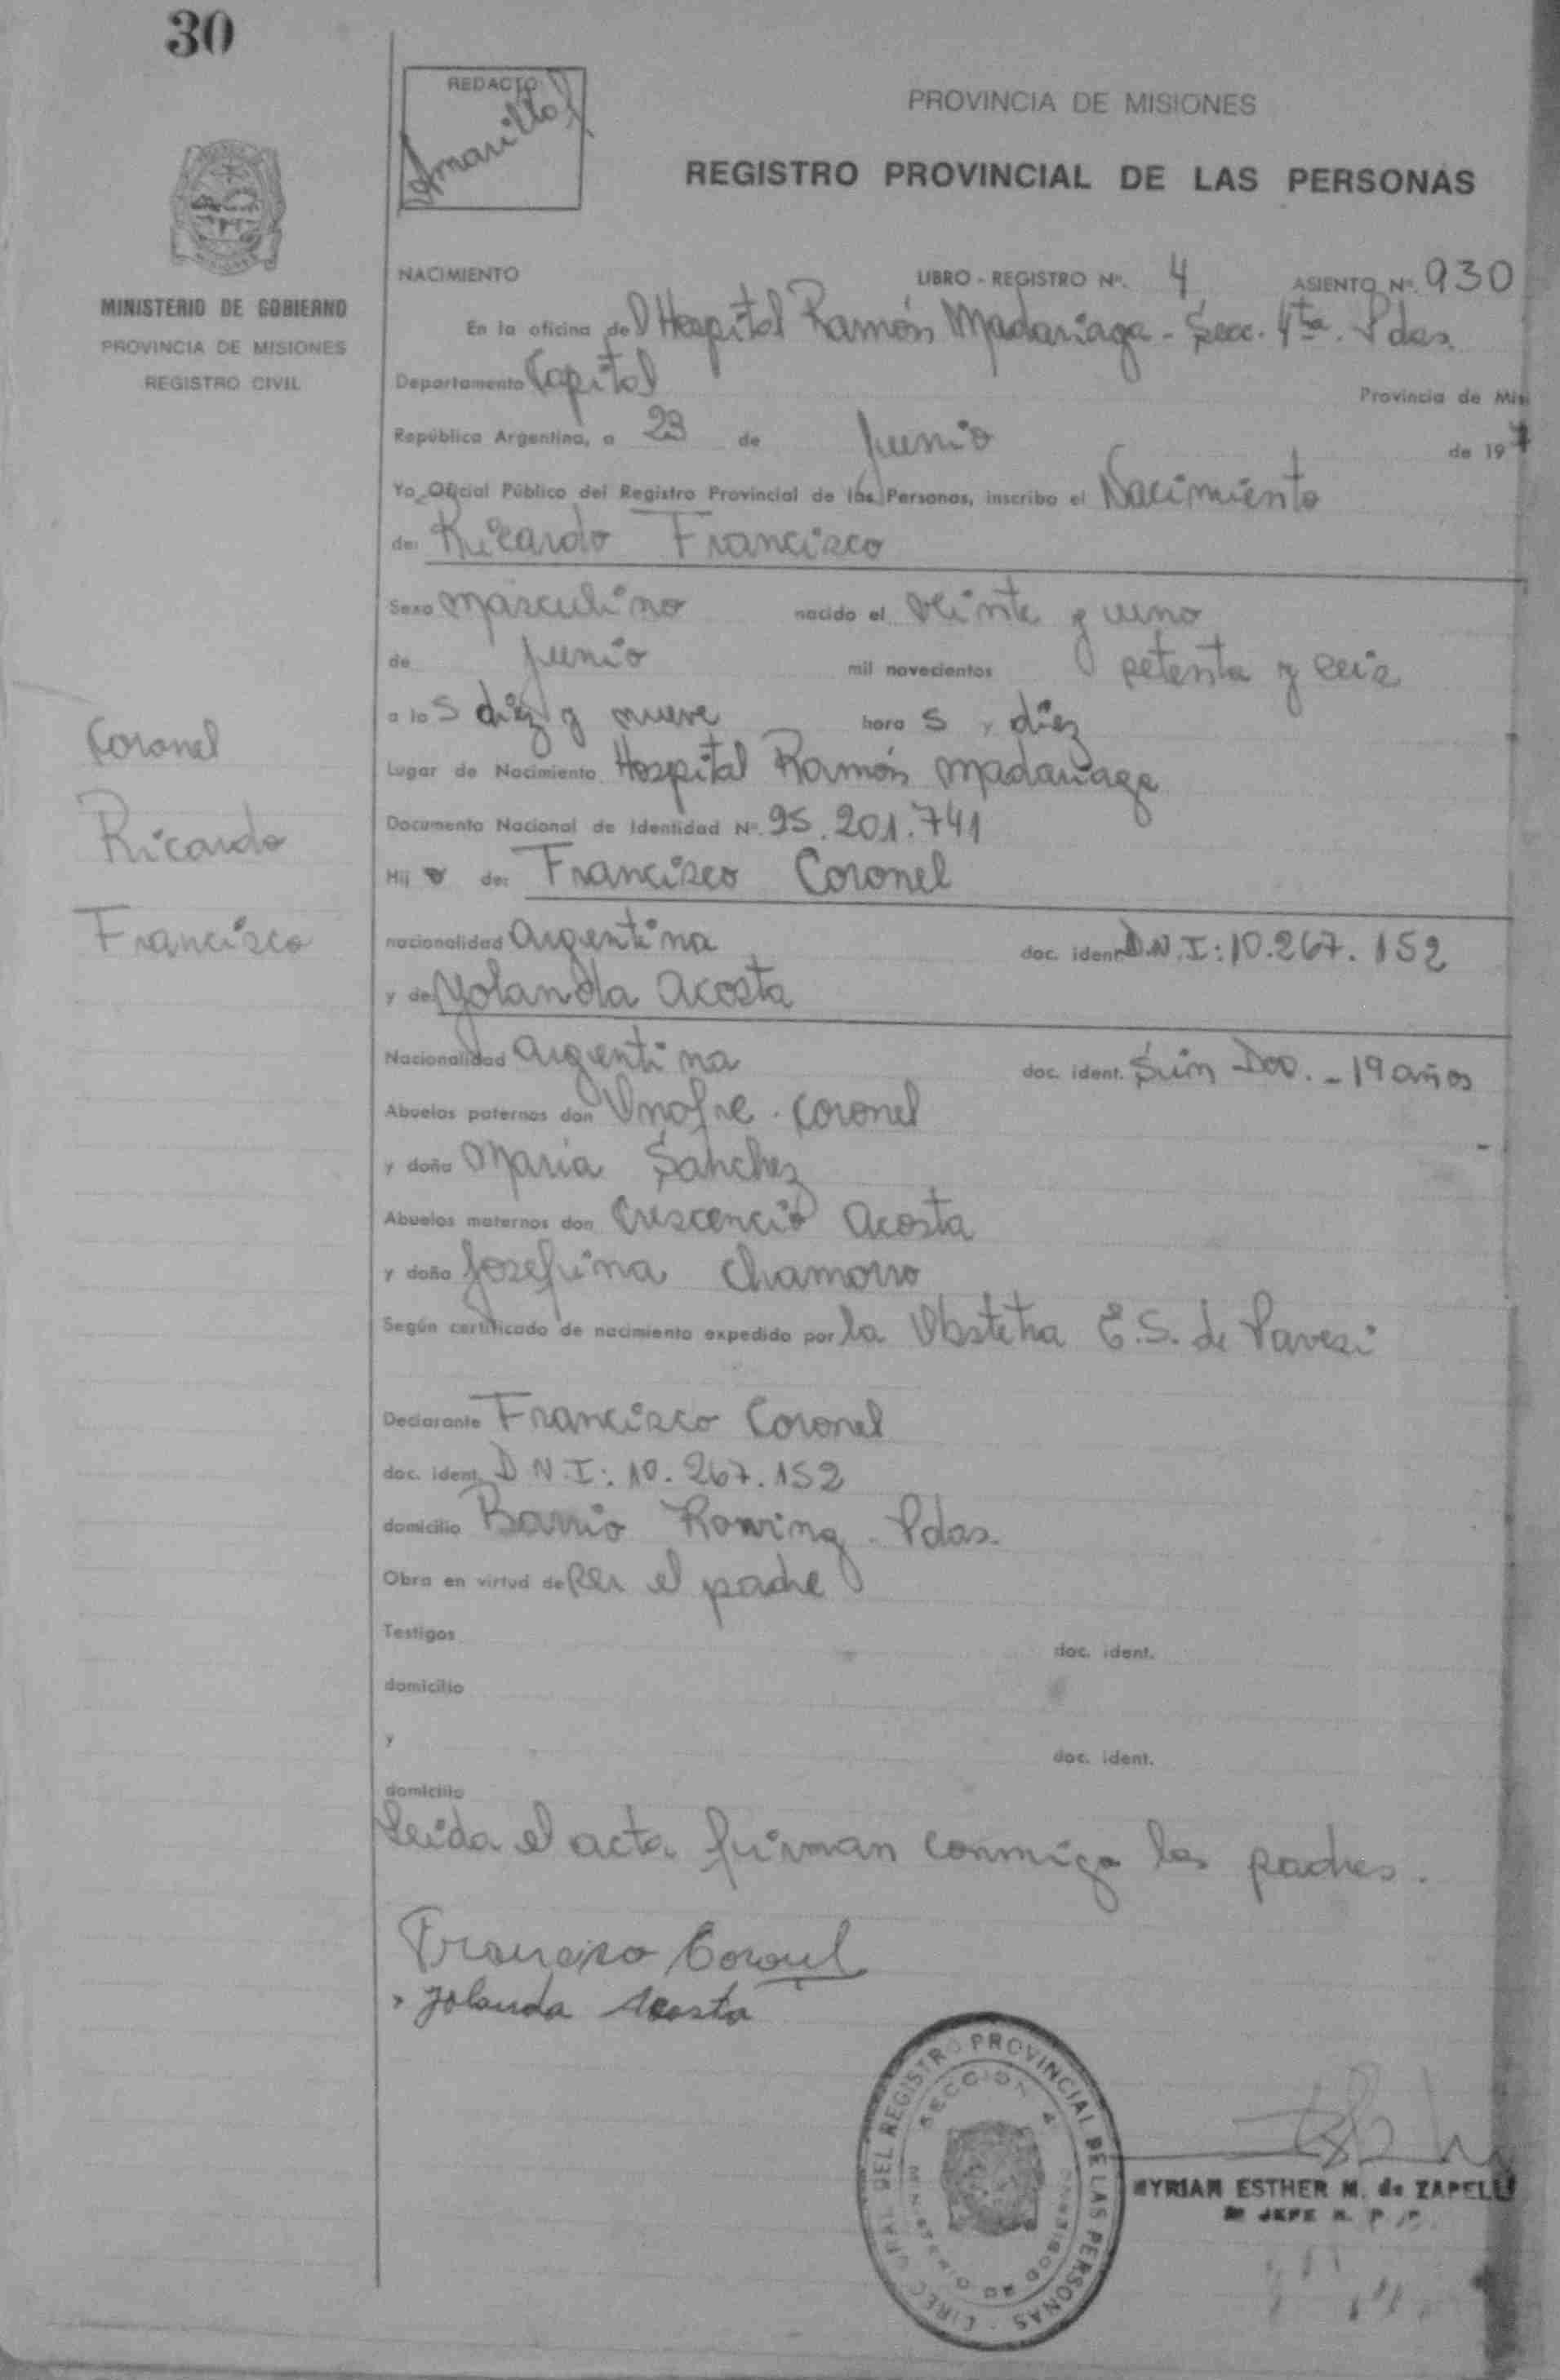 30
REDACTO
Amarilla
PROVINCIA DE MISIONES
REGISTRO PROVINCIAL DE LAS PERSONAS
MINISTERIO DE GOBIERNO
PROVINCIA DE MISIONES
REGISTRO CIVIL
NACIMIENTO LIBRO - REGISTRO Nº. 4 ASIENTO Nº. 930
En la oficina del Hospital Ramón Madariaga - Secc. 4ta. Pdas.
Departamento Capital Provincia de Mis
República Argentina, a 23 de Junio de 197
Yo Oficial Público del Registro Provincial de las Personas, inscribo el Nacimiento
de: Ricardo Francisco
Sexo masculino nacido el veinte y uno
de junio mil novecientos setenta y seis
a las diez y nueve horas y diez
Lugar de Nacimiento Hospital Ramón Madariaga
Documento Nacional de Identidad Nº. 25.201.741
Hijo de: Francisco Coronel
nacionalidad Argentina doc. ident. D.N.I: 10.267.152
y de Yolanda Acosta
Nacionalidad Argentina doc. ident. Sin Doc. - 19 años
Abuelos paternos don Onofre Coronel
y doña María Sánchez
Abuelos maternos don Crescencio Acosta
y doña Josefina Chamorro
Según certificado de nacimiento expedido por la Obstetra E.S. de Pavesi
Declarante Francisco Coronel
doc. ident. D.N.I: 10.267.152
domicilio Barrio Rowing - Pdas.
Obra en virtud de ser el padre
Testigos doc. ident.
domicilio
y doc. ident.
domicilio
Leida el acta firman conmigo los padres.
Coronel
Ricardo
Francisco
Francisco Coronel
Yolanda Acosta
DEL REGISTRO PROVINCIAL DE LAS PERSONAS
SECCION 4
MINISTERIO DE GOBIERNO
MYRIAM ESTHER M. de ZAPELLI
JEFE R. P. P.